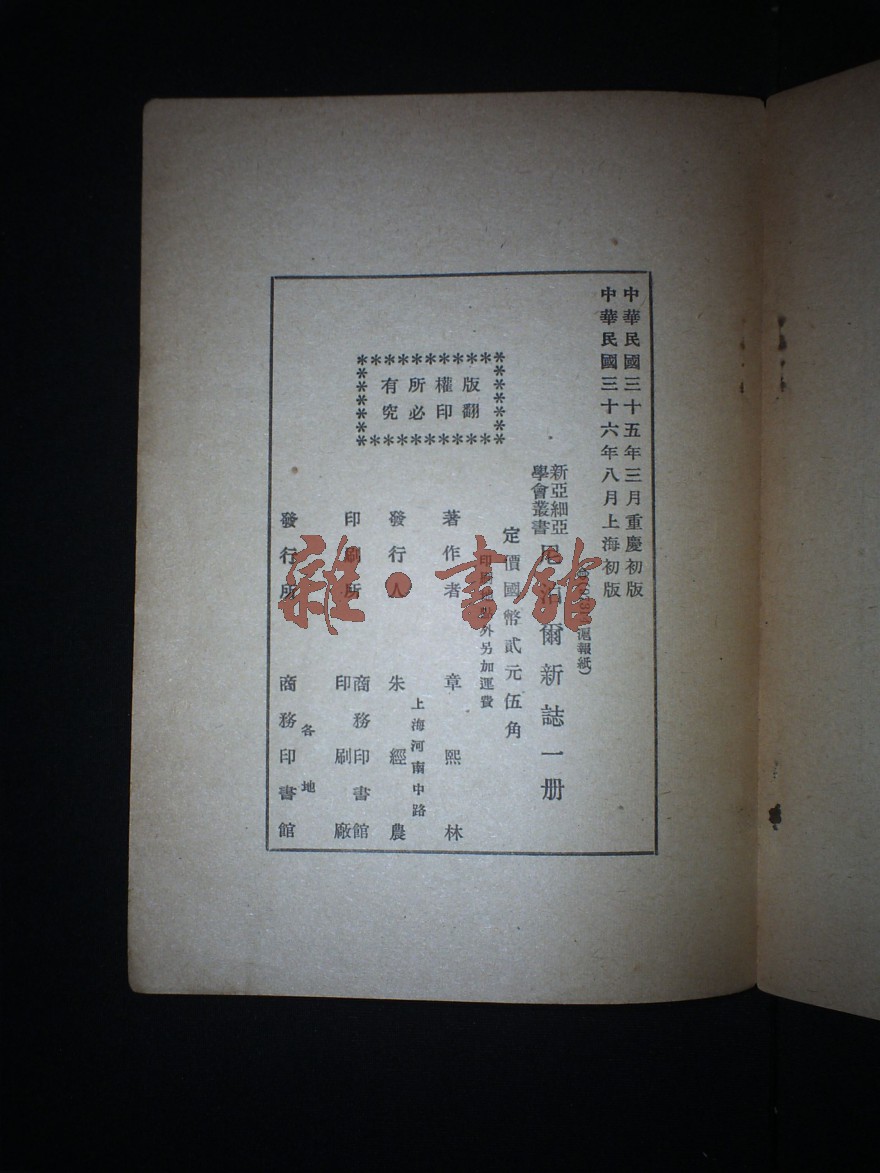 中華民國三十五年三月重慶初版
中華民國三十六年八月上海初版
滬報紙)
新亞細亞
學會叢書
尼泊爾新誌一册
定價國幣貳元伍角
外另加運費
版權所有
翻印必究
著作者 章熙林
發行人 朱經農
上海河南中路
印刷所 商務印書館
印刷廠
發行所 商務印書館
各地
雜·書館